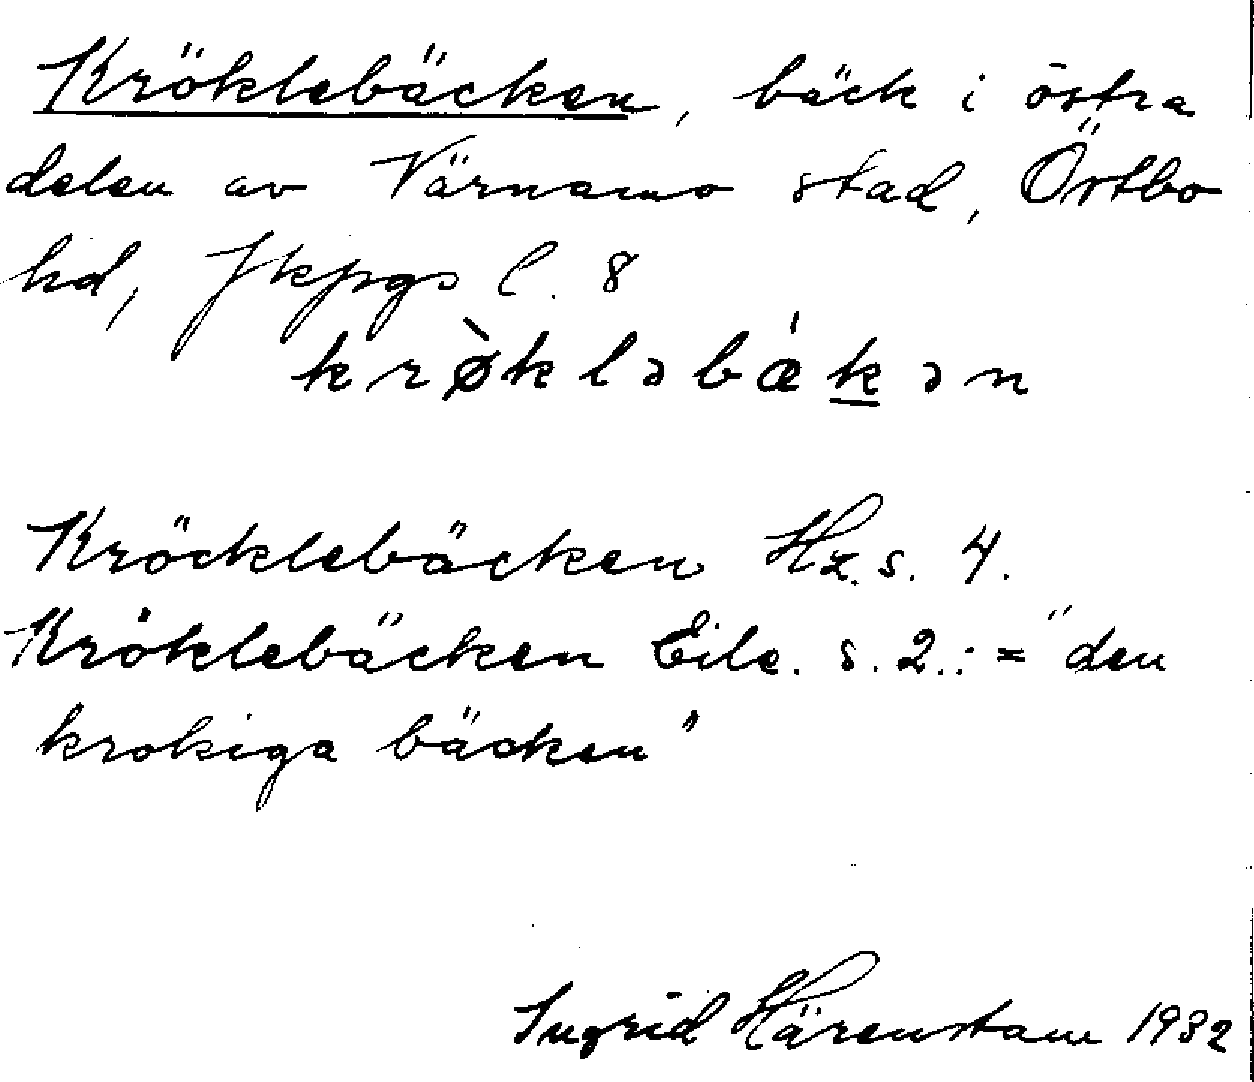 Kröklebäcken, bäck i östra
delen av Värnamo stad, Östbo
hd, Jkpgs l. 8
krø̀kləbǽk̲ən
Kröcklebäcken Hz. s. 4.
Kröklebäcken Eile. s. 2.: = "den
krokiga bäcken"
Ingrid Härenstam 1932